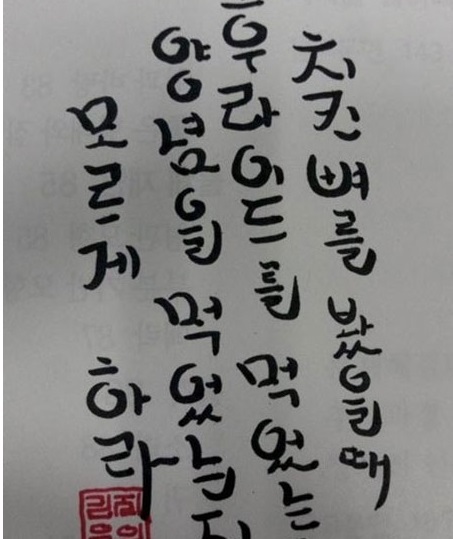 치킨 뼈를 봤을때
후라이드를 먹었는
양념을 먹었는지
모르게 하라